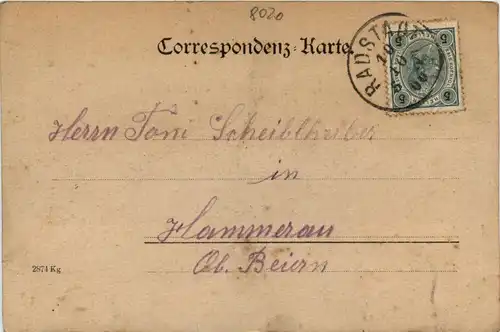 8020
Correspondenz-Karte.
RADSTADT
Herrn Toni Scheiblhuber
in
Hammerau
Ob. Beiern
2874 Kg